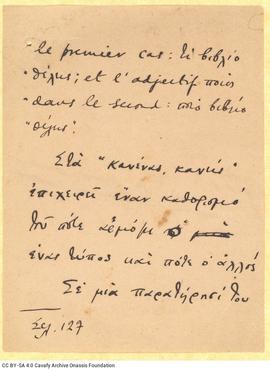 "le premier cas: τί βιβλίο
"θέλεις; et l'adjectif ποιός
"dans le second: ποιό βιβλίο
"θέλεις".
Στά "κανένας, κανείς"
ἐπιχειρεῖ ἕναν καθορισμό
τοῦ πότε ἁρμόζει ὁ
ἕνας τύπος καὶ πότε ὁ ἄλλος
Σέ μιά παρατήρησί του
Σελ. 127
CC BY-SA 4.0 Cavafy Archive Onassis Foundation